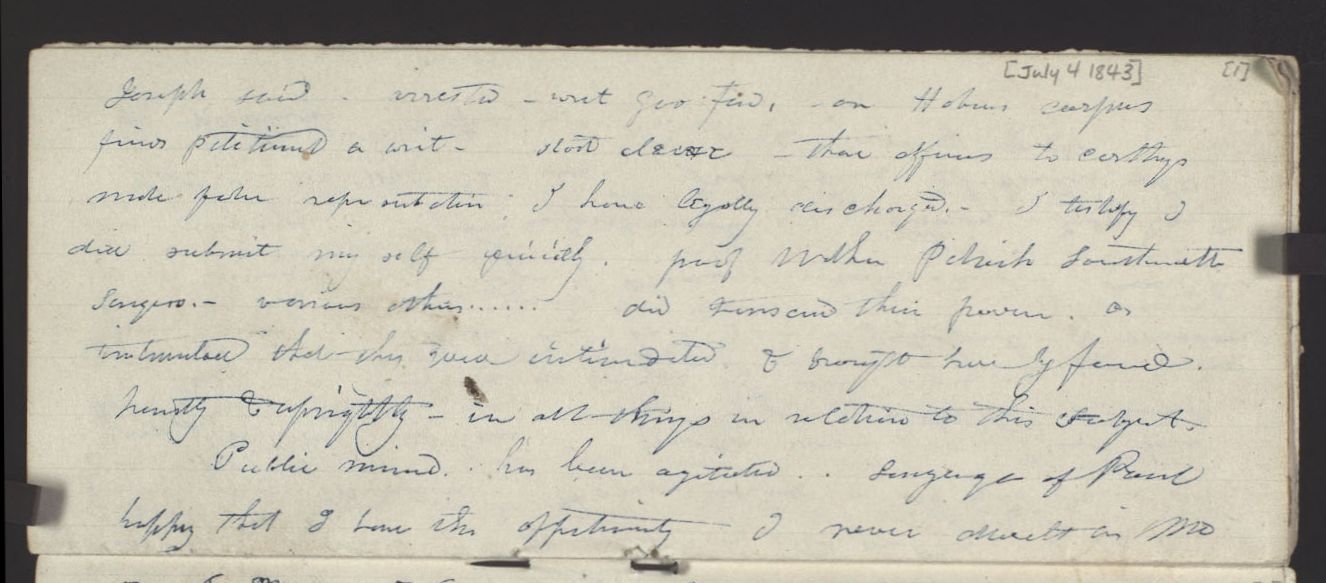 [July 4 1843] [1]
Joseph said - arrested - writ Gov. ford, - on Habeus corpus
petitiond a writ - that officers to carthage
made false representation, I have legally discharged. - I testify I
did submit my self quietly. proof Walker Patrick Southwick
Sangers. - various others...... did transcend their power. as
intimated that they were intimidated & brought here by force.
honestly & uprightly - in all things in relation to this subject.
Public mind.. has been agitated.. language of Paul
happy that I have this opportunity I never dwelt in Mo